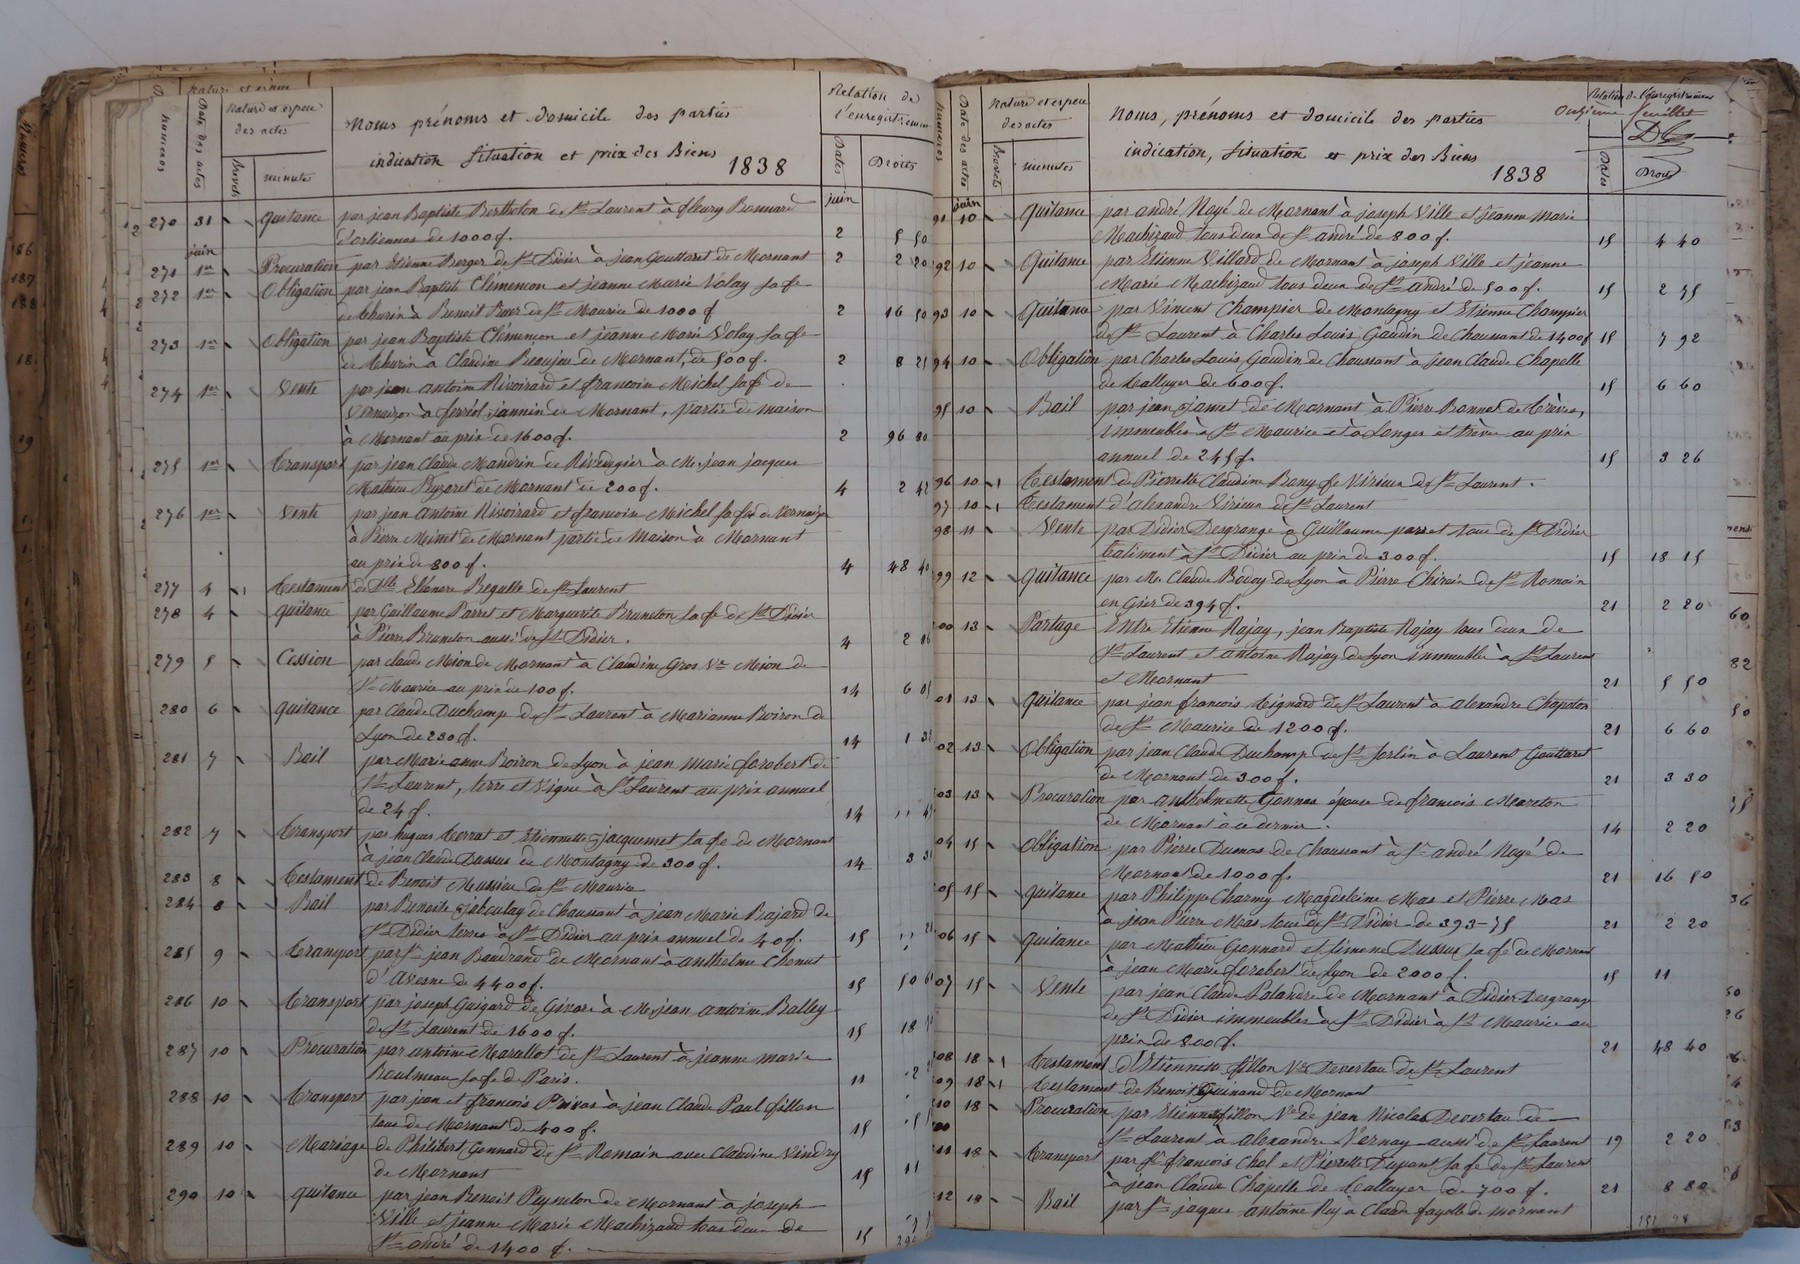 numeros
Date des actes
Nature et espece
des actes
Brevets
minutes
Noms prénoms et domicile des parties
indication situation et prix des Biens
1838
Relation de
l'enregistrement
Dates
Droits
juin
270 31 quitance par jean Baptiste Bertholon de St Laurent à fleury Bonnard
d'ortiennas de 1000 f. 2 5 50
juin
271 1er Procuration par Etienne Berger de St Didier à jean Gouttaret de Mornant 2 2 20
272 1er Obligation par jean Baptiste Clémencon et jeanne Marie Volay sa fe
de thurin à Benoit de St Maurice de 1000 f 2 16 50
273 1er Obligation par jean Baptiste Clémençon et jeanne Marie Volay sa fe
de thurin à Claudine Beaujeu de Mornant, de 500 f. 2 8 25
274 1er Vente par jean antoine Rivoirard et francoise Michel sa fe de
Vernaizon à ferréol jannin de Mornant, partie de maison
à Mornant au prix de 1600 f. 2 96 80
275 1er transport par jean Claude Mandrin de Riverie à Me jean jacques
Mathieu de Mornant de 200 f. 4 2 42
276 1er Vente par jean Antoine Rivoirard et francoise Michel sa fe de Vernaizon
à Pierre de Mornant partie de Maison à Mornant
au prix de 800 f. 4 48 40
277 4 testament de Dlle Eléonore Regulle de St Laurent
278 4 quitance par Guillaume Parret et Marguerite Bruneton sa fe de St Didier
à Pierre Bruneton aussi de St Didier. 4 2 16
279 5 Cession par claude Mion de Mornant à Claudine Gros Ve Mion de
St Maurice au prix de 100 f. 14 6 05
280 6 quitance par Claude Duchamp de St Laurent à Marianne Boiron de
Lyon de 230 f. 14 1 32
281 7 Bail par Marie anne Boiron de Lyon à jean marie forobert de
St Laurent, terre et Vigne à St Laurent au prix annuel
de 24 f. 14
282 7 transport par hugues terrat et Etiennette jacquemet sa fe de Mornant
à jean Claude Dussus de Montagny de 300 f. 14 3
283 8 testament de Benoit Mussieu de St Maurice
284 8 Bail par Benoite jaboulay de Chaussant à jean Marie Bajard de
St Didier terres à St Didier au prix annuel de 40 f. 15
285 9 transport par Sr jean Bandrand de Mornant à anthelme Chomat
d'Avesne de 4400 f. 15 50
286 10 transport par joseph Guigard de Givors à Me jean antoine Balley
de St Laurent de 1600 f. 15 18
287 10 Procuration par antoine Marullot de St Laurent à jeanne marie
sa fe de Paris. 11 2
288 10 transport par jean et francois Privas à jean Claude Paul fillon
tous de Mornant de 400 f. 15
289 10 Mariage de Philibert Gonnard de St Romain avec Claudine Vindry
de Mornant 15 11
290 10 quitance par jean Benoit Peynelon de Mornant à joseph
Ville et jeanne Marie Machizaud tous deux de
St andré de 1400 f. 15
numeros
Date des actes
Nature et espece
des actes
Brevets
minutes
Noms, prénoms et domicile des parties
indication, situation et prix des Biens
1838
Relation de l'enregistrement
Onzième feuillet
Dates
Droits
juin
91 10 quitance par andré Noyé de Mornant à joseph Ville et jeanne Marie
Machizaud tous deux de St andré de 800 f. 15 4 40
92 10 Quitance par Etienne Villard de Mornant à joseph Ville et jeanne
Marie Machizaud tous deux de St andré de 500 f. 15 2 75
93 10 Quitance par Vincent Champier de Montagny et Etienne Champier
de St Laurent à Charles Louis Gaudin de Chaussant de 1400 f 15 7 92
94 10 Obligation par Charles Louis Gaudin de Chaussant à jean Claude Chapelle
de talluyer de 600 f. 15 6 60
95 10 Bail par jean jamet de Mornant à Pierre Bonnet de trèves,
immeubles à St Maurice et à Longes et trèves au prix
annuel de 245 f. 15 3 26
96 10 testament de Pierrette Claudine Bony fe Virieux de St Laurent.
97 10 testament d'alexandre Virieux de St Laurent
98 11 Vente par Didier Desgrange à Guillaume parret tous de St Didier
batiment à St Didier au prix de 300 f. 15 18 15
99 12 quitance par Me Claude Bovay de Lyon à Pierre Chirain de St Romain
en Gier de 394 f. 21 2 20
00 13 Partage Entre Etienne Rajay, jean Baptiste Rajay tous deux de
St Laurent et antoine Rajay de Lyon immeubles à St Laurent
et Mornant 21 5 50
01 13 quitance par jean francois Mignard de St Laurent à alexandre Chapoton
de St Maurice de 1200 f. 21 6 60
02 13 Obligation par jean Claude Duchamp de St sorlin à Laurent Gouttaret
de Mornant de 300 f. 21 3 30
03 13 Procuration par anthelmette Gonnas épouse de francois Mareton
de Mornant à ce dernier. 14 2 20
04 15 Obligation par Pierre Dumas de Chaussant à Sr andré Noyé de
Mornant de 1000 f. 21 16 50
05 15 quitance par Philippe Charmy Magdeleine Mas et Pierre Mas
à jean Pierre Mas tous de St Didier de 393=75 21 2 20
06 15 quitance par Mathieu Gonnard et simone Dussus sa fe de Mornant
à jean Marie forobert de Lyon de 2000 f. 15 11
07 15 Vente par jean Claude Palandre de Mornant à Didier Desgrange
de St Didier immeubles à St Didier à St Maurice au
prix de 800 f. 21 48 40
08 18 testament d'Etiennette fillon Ve Devertau de St Laurent
09 18 testament de Benoit Guinand de Mornant
10 18 Procuration par Etiennette fillon Ve de jean Nicolas Devertau de
St Laurent à alexandre Vernay aussi de St Laurent 19 2 20
11 18 transport par Sr francois Chol et Pierrette Dupont sa fe de St Laurent
à jean Claude Chapelle de talluyer de 700 f. 21 8 80
12 18 Bail par Sr jaques antoine Rey à Claude fayolle de mornant